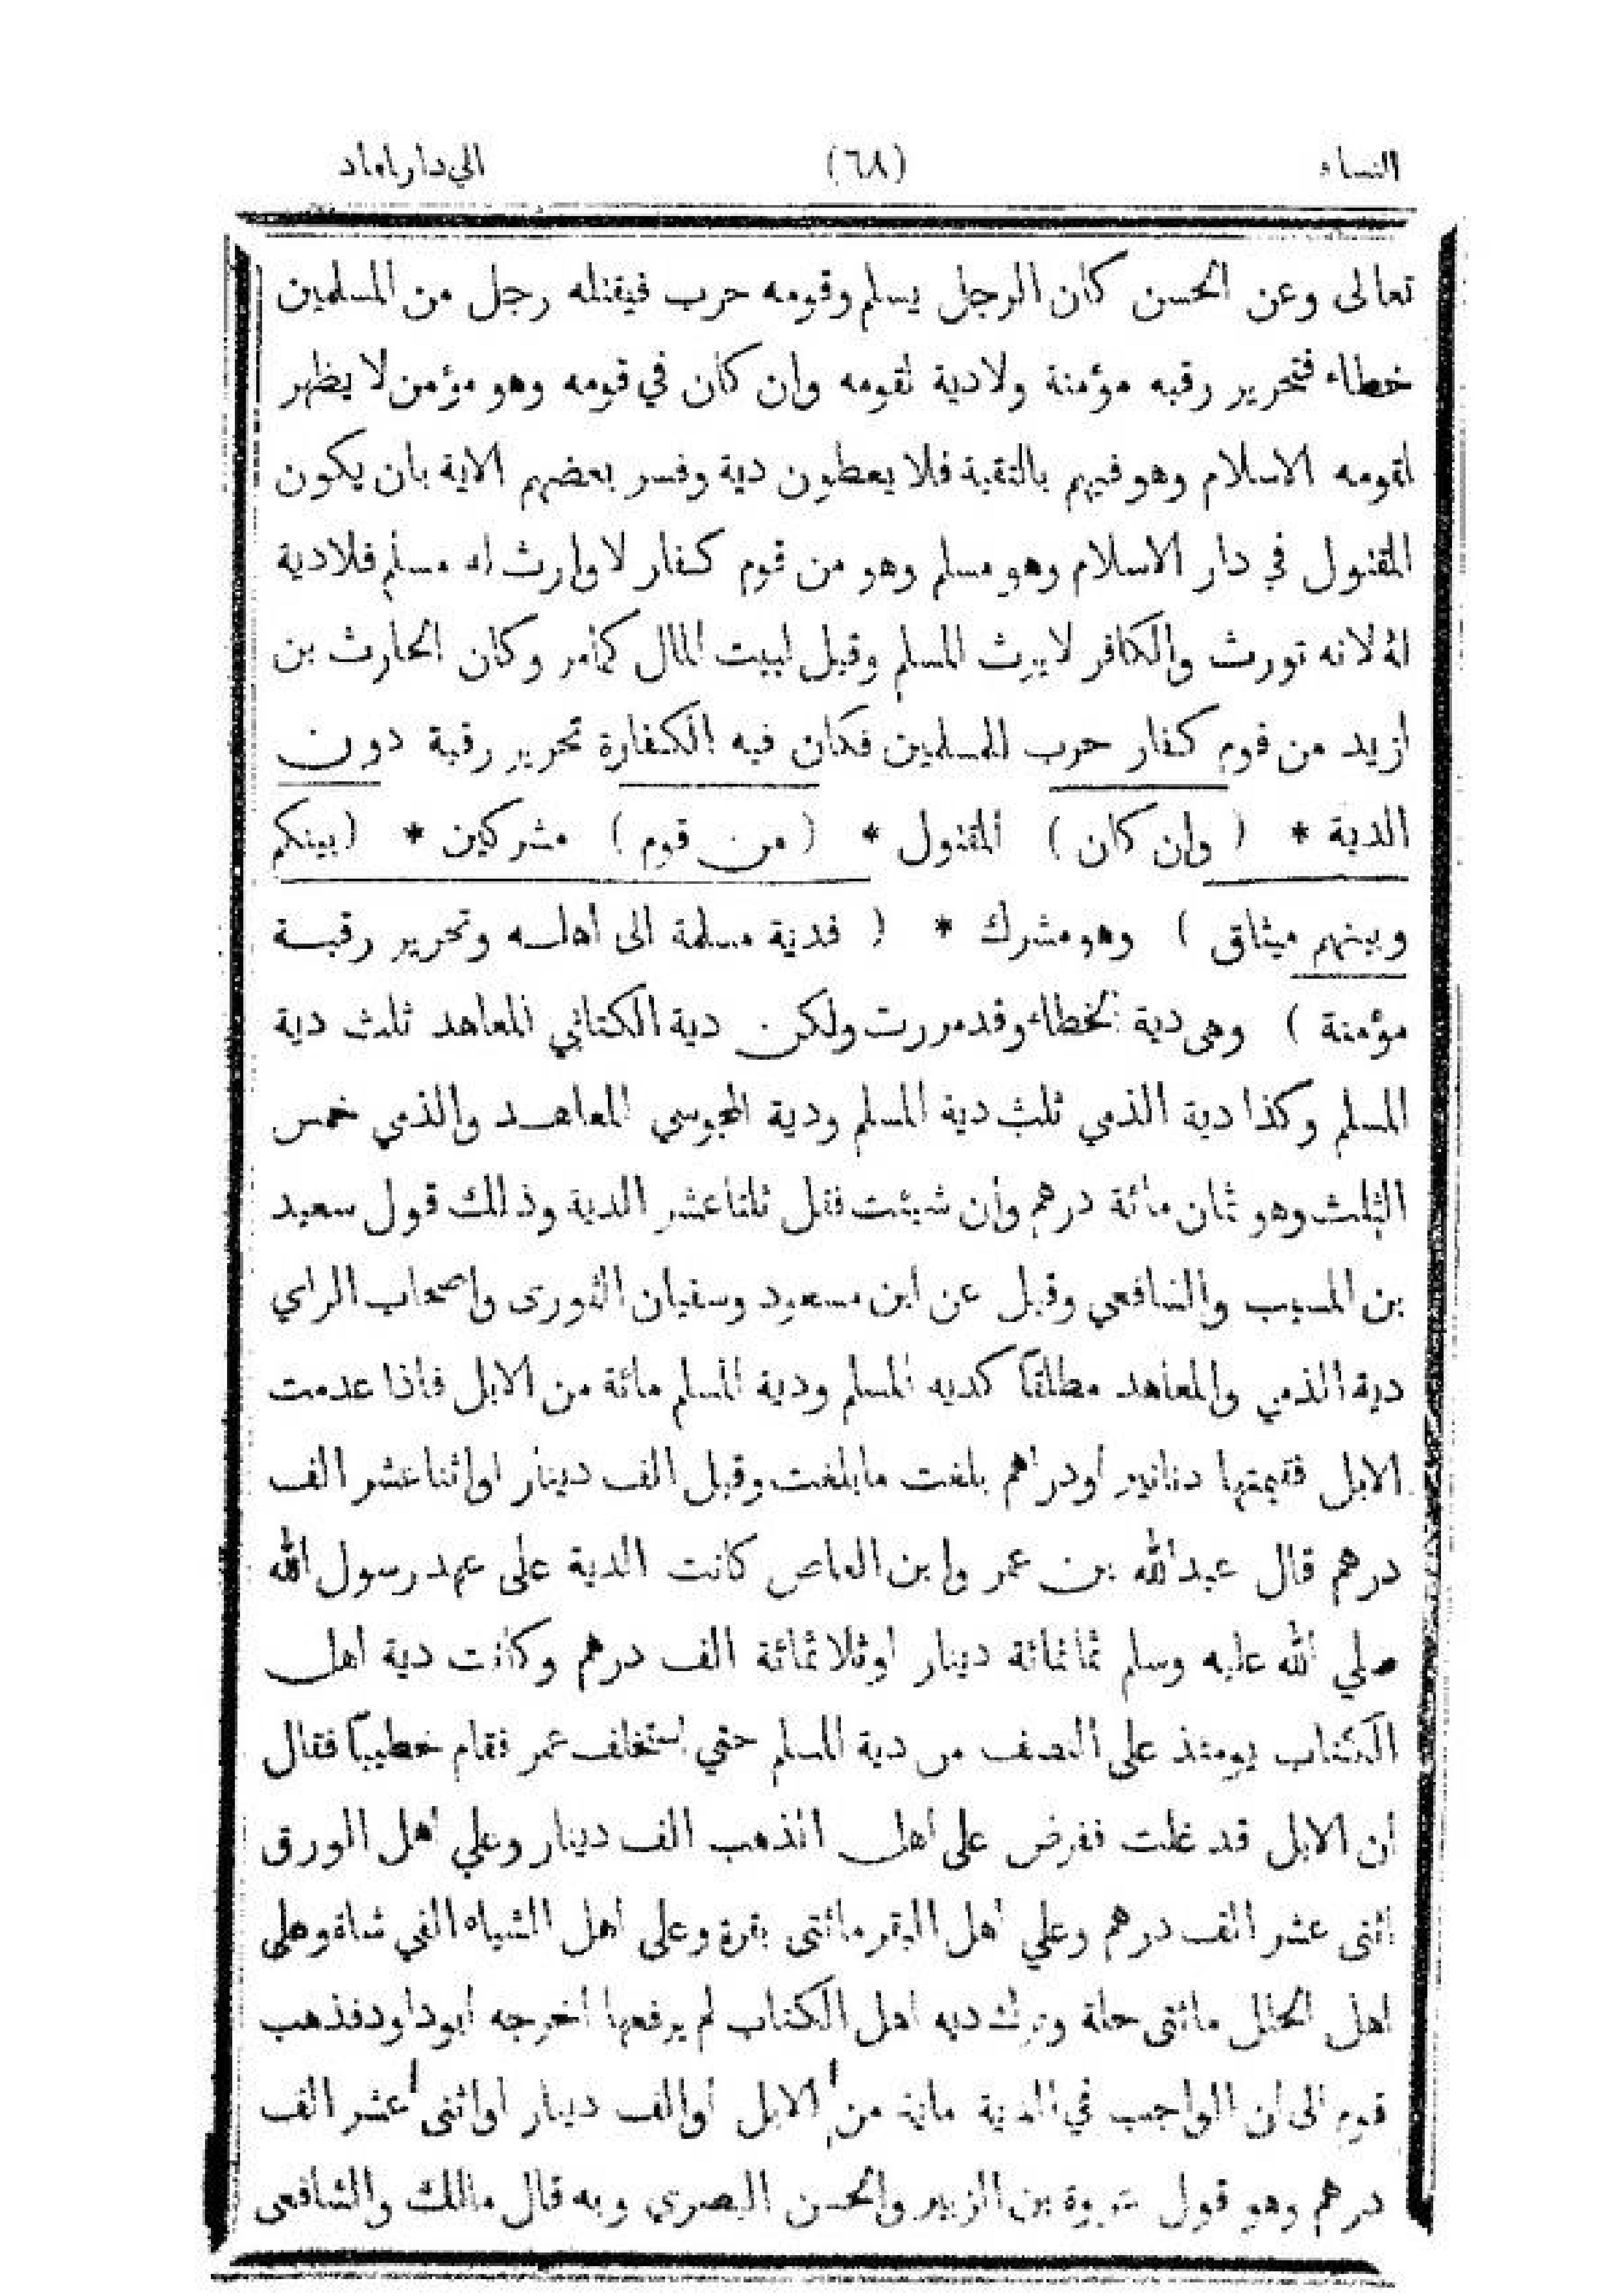 النساء (٦٨) الي دار امعاد
تعالى وعن الحسن كان الرجل يسلم وقومه حرب فيقتله رجل من المسلمين
خطاء فتحرير رقبه مؤمنة ولادية لقومه وان كان في قومه وهو مؤمن لا يظهر
لقومه الاسلام وهو فيهم بالتقية فلا يعطون دية وفسر بعضهم الاية بان يكون
المقتول في دار الاسلام وهو مسلم وهو من قوم كفار لا وارث له مسلم فلادية
له لانه تورث والكافر لايرث المسلم وقيل لبيت المال كمأمر وكان الحارث بن
ازيد من قوم كفار حرب للمسلمين فكان فيه الكفارة تحرير رقبة دون
الدية * ( وان كان ) المقتول * ( من قوم ) مشركين * ( بينكم
وبينهم ميثاق ) وهو مشرك * ( فدية مسلمة الى اهله وتحرير رقبة
مؤمنة ) وهى دية الخطاء وقد مررت ولكن دية الكتابي المعاهد ثلث دية
المسلم وكذا دية الذمي ثلث دية المسلم ودية المجوسي المعاهد والذمي خمس
الثلث وهو ثمان مائة درهم وأن شيئت فقل ثلثا عشر الدية وذلك قول سعيد
بن المسيب والشافعي وقيل عن ابن مسعود وسفيان الثورى واصحاب الراي
دية الذمي والمعاهد مطلقاً كديه المسلم ودية المسلم مائة من الابل فاذا عدمت
الابل فقيمتها دنانير أو دراهم بلغت مابلغت وقيل الف دينار او اثنا عشر الف
درهم قال عبدالله بن عمر وابن العاص كانت الدية على عهد رسول الله
صلي الله عليه وسلم ثمانمائة دينار اوثلاثمائة الف درهم وكانت دية اهل
الكتاب يومئذ على النصف من دية المسلم حتي استخلف عمر فقام خطيباً فقال
أن الابل قد غلت ففرض على أهل الذهب الف دينار وعلي أهل الورق
اثنى عشر الف درهم وعلي أهل البقر مائتى بقرة وعلى أهل الشياه الفي شاة وعلى
اهل الحلل مائتى حلة وترك ديه اهل الكتاب لم يرفعها اخرجه ابوداود فذهب
قوم الى ان الواجب في الدية مائة من الابل أوالف دينار اواثنى عشر الف
درهم وهو قول عروة بن الزبير والحسن البصري وبه قال مالك والشافعى